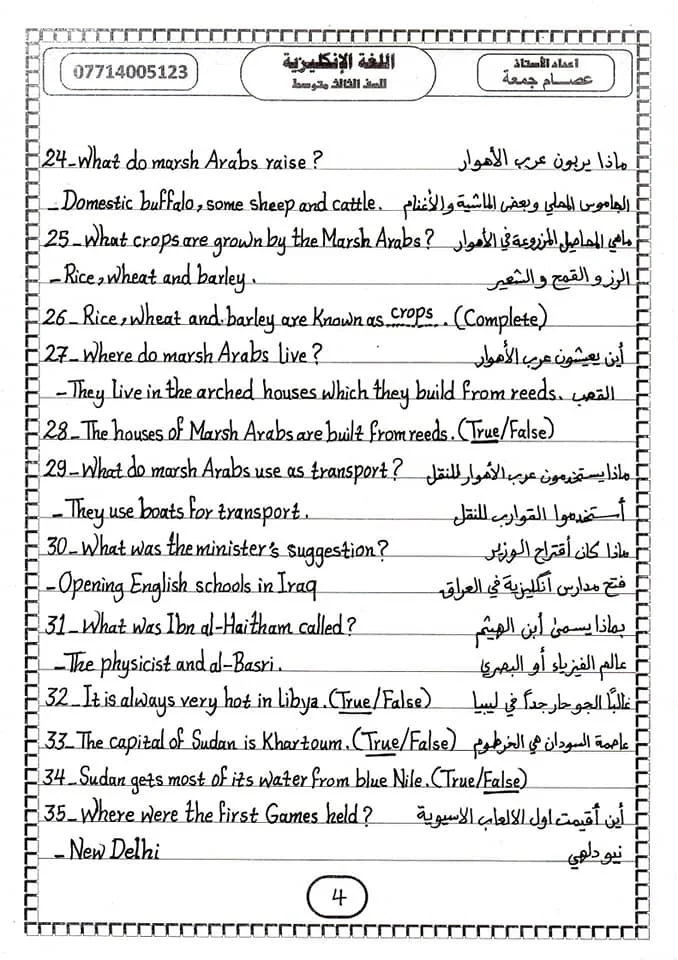 اعداد الأستاذ
عصام جمعة
اللغة الإنكليزية
للصف الثالث متوسط
07714005123
24_What do marsh Arabs raise? ماذا يربون عرب الأهوار
_ Domestic buffalo, some sheep and cattle. الجاموس المحلي وبعض الماشية والأغنام
25_What crops are grown by the Marsh Arabs? ماهي المحاصيل المزروعة في الأهوار
_ Rice, wheat and barley. الرز و القمح والشعير
26_ Rice, wheat and barley are Known as crops. (Complete)
27_ Where do marsh Arabs live? أين يعيشون عرب الأهوار
_ They live in the arched houses which they build from reeds. القصب
28_ The houses of Marsh Arabs are built from reeds. (True/False)
29_ What do marsh Arabs use as transport? ماذا يستخدمون عرب الأهوار للنقل
_ They use boats for transport. أستخدموا القوارب للنقل
30_ What was the minister's suggestion? ماذا كان أقتراح الوزير
_ Opening English schools in Iraq فتح مدارس أنكليزية في العراق
31_ What was Ibn al-Haitham called? بماذا يسمى أبن الهيثم
_ The physicist and al-Basri. عالم الفيزياء أو البصري
32_ It is always very hot in Libya. (True/False) غالبًا الجو حار جداً في ليبيا
33_ The capital of Sudan is Khartoum. (True/False) عاصمة السودان هي الخرطوم
34_ Sudan gets most of its water from blue Nile. (True/False)
35_ Where were the first Games held? أين أقيمت اول الالعاب الاسيوية
_ New Delhi نيو دلهي
4